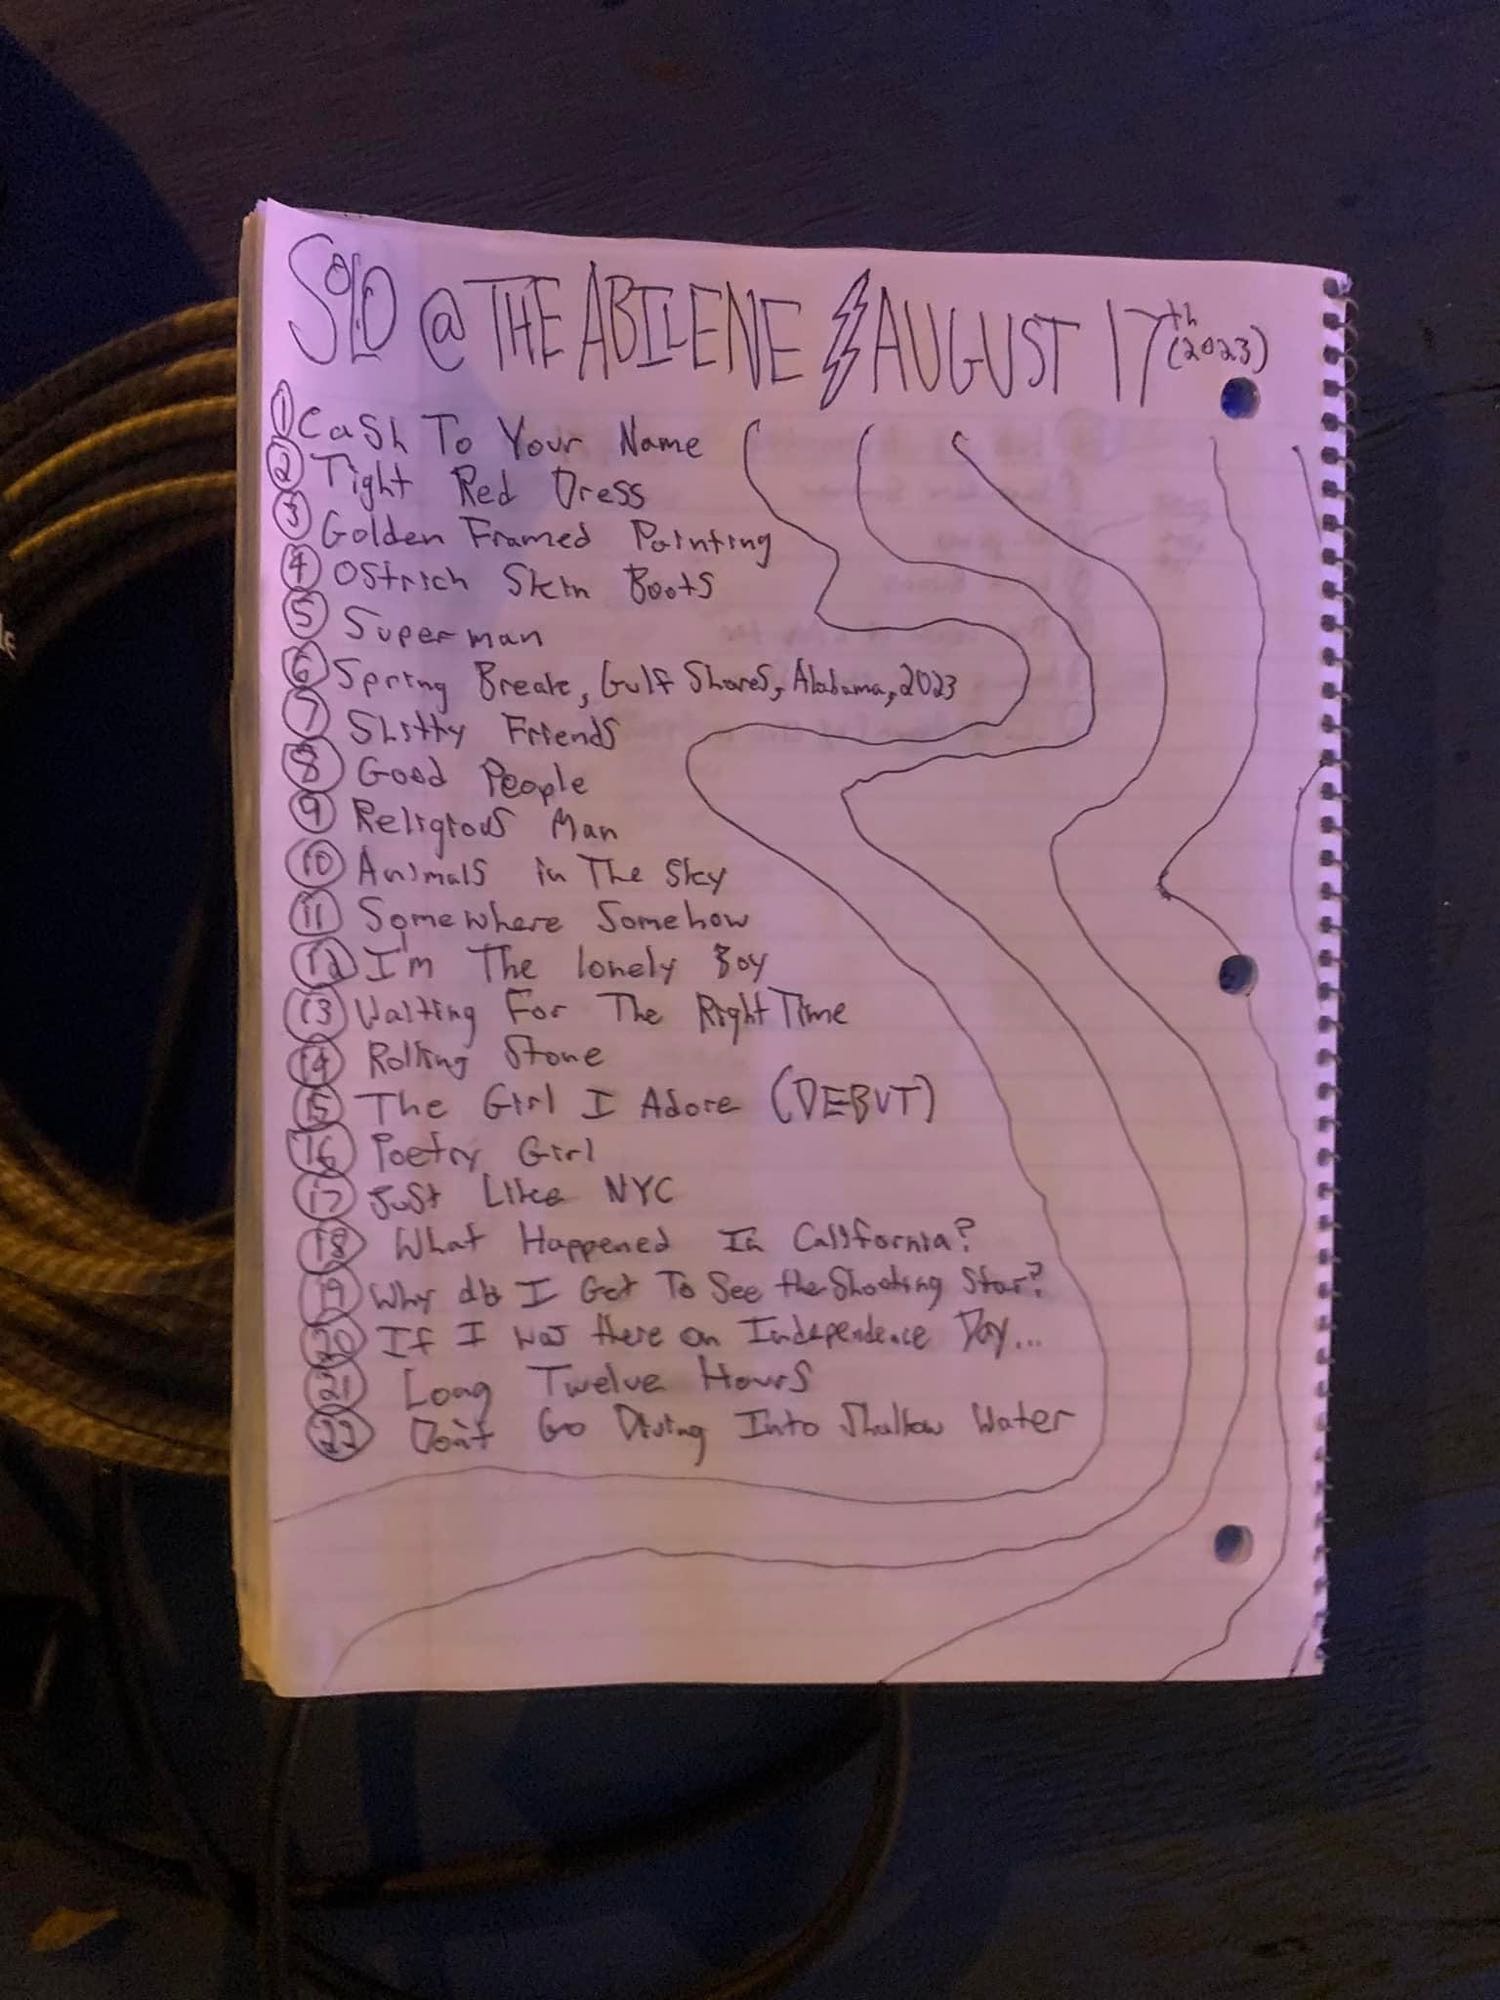 SOLO @ THE ABILENE AUGUST 17th (2023)
1 Cash To Your Name
2 Tight Red Dress
3 Golden Framed Painting
4 Ostrich Skin Boots
5 Superman
6 Spring Break, Gulf Shores, Alabama, 2023
7 Shitty Friends
8 Good People
9 Religious Man
10 Animals in The Sky
11 Somewhere Somehow
12 I'm The lonely Boy
13 Waiting For The Right Time
14 Rolling Stone
15 The Girl I Adore (DEBUT)
16 Poetry Girl
17 Just Like NYC
18 What Happened In California?
19 Why do I Get To See the Shooting Star?
20 If I was there on Independence Day...
21 Long Twelve Hours
22 Don't Go Diving Into Shallow Water